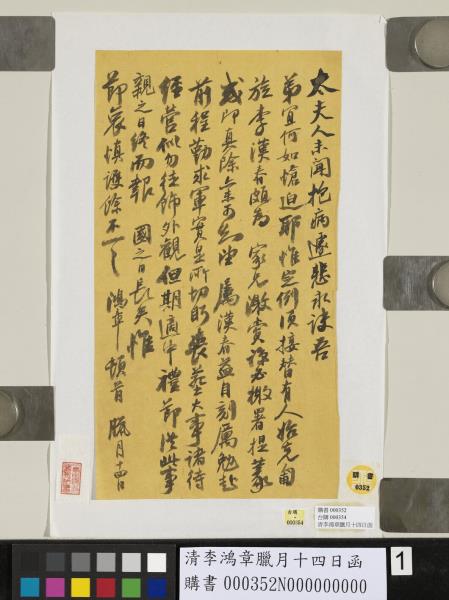 太夫人未聞抱病遽悲永訣吾
弟宜何如愴迫耶惟定例須接替有人始克匍
旋李漢春頗為 家兄激賞諒必檄署提篆
或即真除 屬漢春益自刻厲勉赴
前程勤求軍實是所切盼喪葬大事諸待
經營似勿徒飾外觀但期適中禮節從此事
親之日終而報 國之日長矣惟
節哀慎護餘不一一 鴻章頓首 臘月十四日
購書
0352
台購
000354
購書 000352
台購 000354
清李鴻章臘月十四日函
清李鴻章臘月十四日函
購書 000352N000000000
1